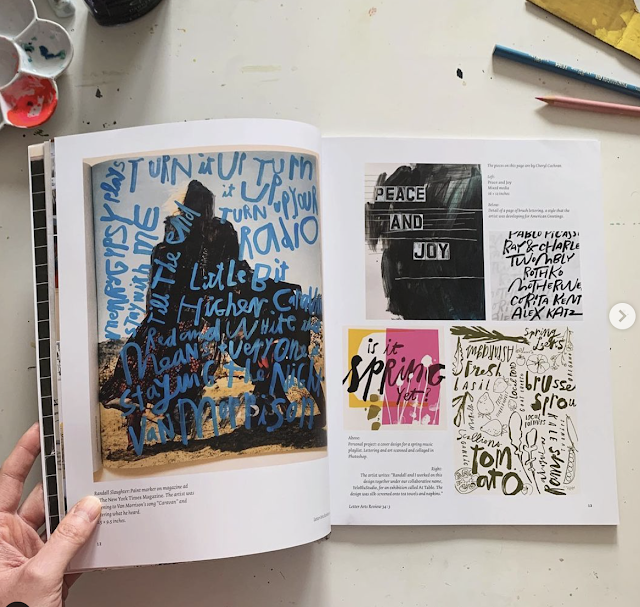 TURN it UP TURN
it UP
TURN UP YOUR
RADIO
GYPSY Plays
Stay with ME
Till The End
Little Bit
Higher
Red and White
Mean Everyone
Staying The Night
Van Morrison
Randall Slaughter: Paint marker on magazine ad
The New York Times Magazine. The artist was
to Van Morrison's song "Caravan" and
what he heard.
x 9.5 inches.
PEACE
AND
JOY
The pieces on this page are by Cheryl
Left:
Peace and Joy
Mixed media
Above:
Detail of a page of brush lettering, a style that the
artist was developing for American Greetings.
PABLO PICASSO
RAY & CHARLE
TWOMBLY
ROTHKO
MOTHERWE
CORITA KENT
ALEX KATZ
is it
SPRING
yet?
Above:
Personal project: a cover design for a spring music
playlist. Lettering and art scanned and collaged in
Photoshop.
Right:
The artist writes: "Randall and I worked on this
design together under our collaborative name,
for an exhibition called At Table. The
design was silk-screened onto tea towels and napkins."
Spring
Fresh
basil
brusse
Sprou
scallions
local
KALE
tom
ato
Letter Arts Review 34:3